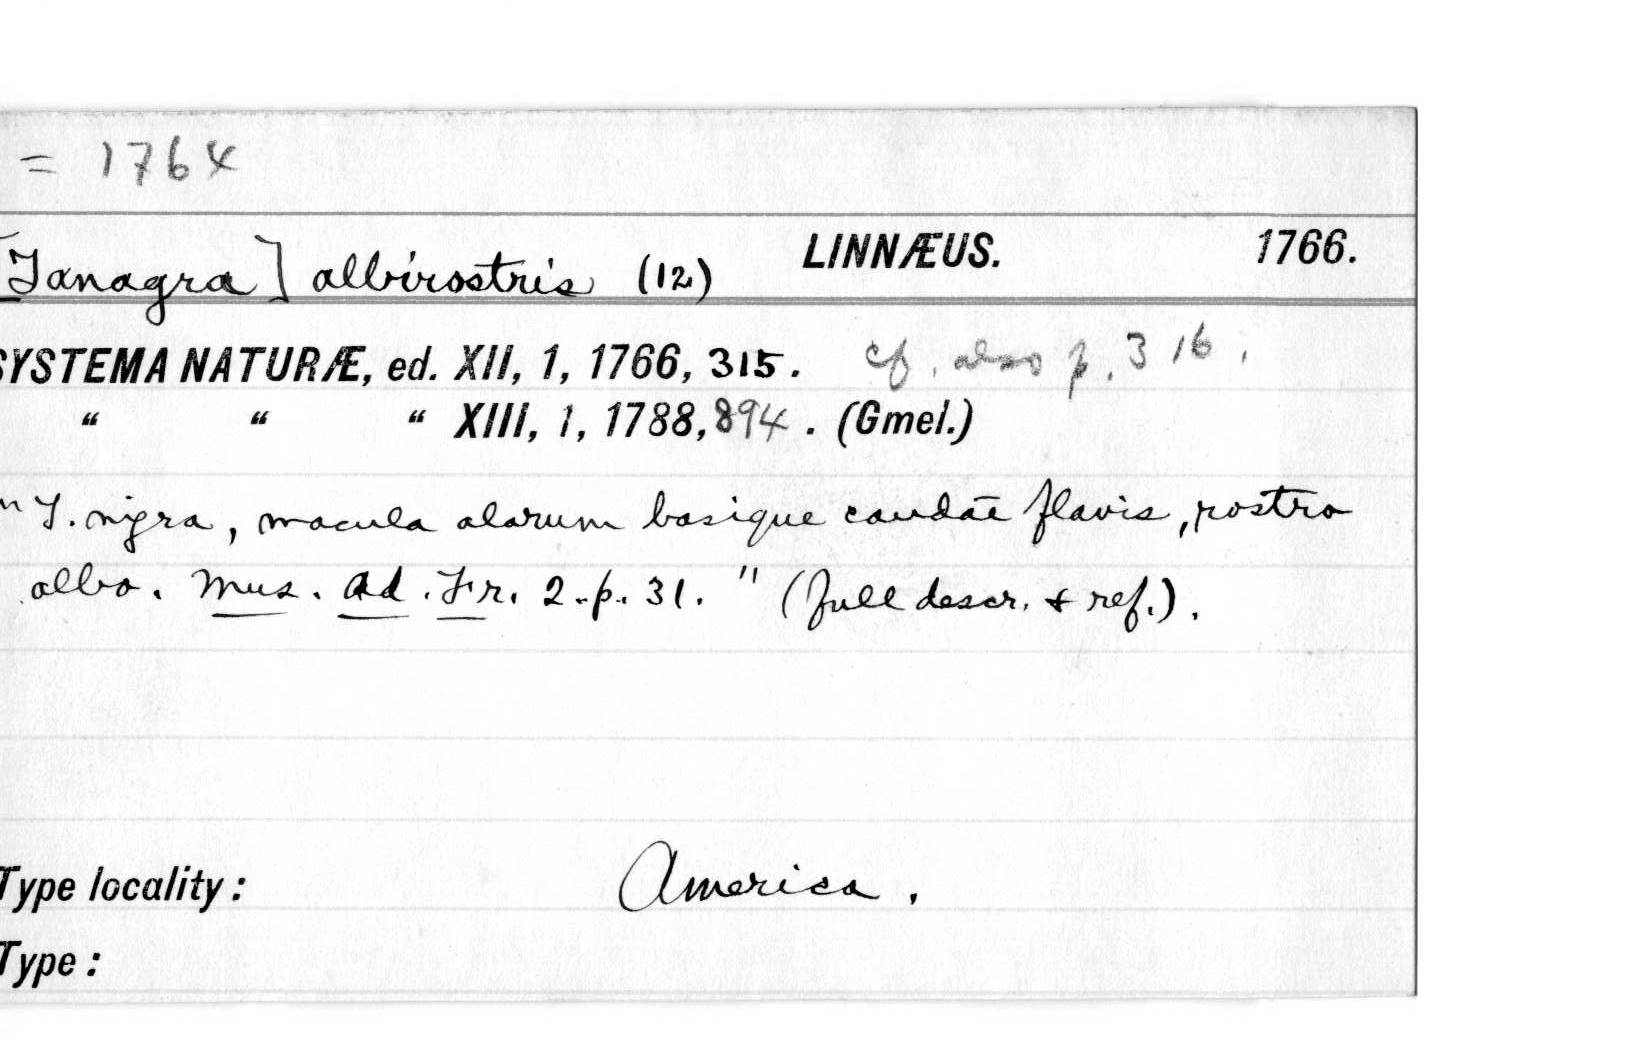 = 1764
[Tanagra] albirostris (12) LINNÆUS. 1766.
SYSTEMA NATURÆ, ed. XII, 1, 1766, 315. cf. also p. 316.
“ “ “ XIII, 1, 1788, 894. (Gmel.)
"T. nigra, macula alarum basique caudae flavis, rostro
albo. Mus. Ad. Fr. 2. p. 31." (full descr. & ref.).
Type locality: America.
Type: